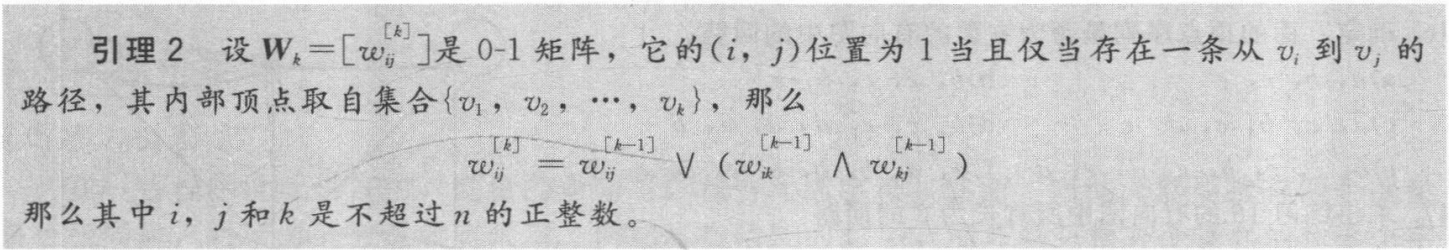 引理 2 设 Wₖ=[wᵢⱼ^[k]]是 0-1 矩阵，它的(i, j)位置为 1 当且仅当存在一条从 vᵢ 到 vⱼ 的
路径，其内部顶点取自集合{v₁, v₂, …, vₖ}，那么
wᵢⱼ^[k] = wᵢⱼ^[k−1] ∨ (wᵢₖ^[k−1] ∧ wₖⱼ^[k−1])
那么其中 i，j 和 k 是不超过 n 的正整数。